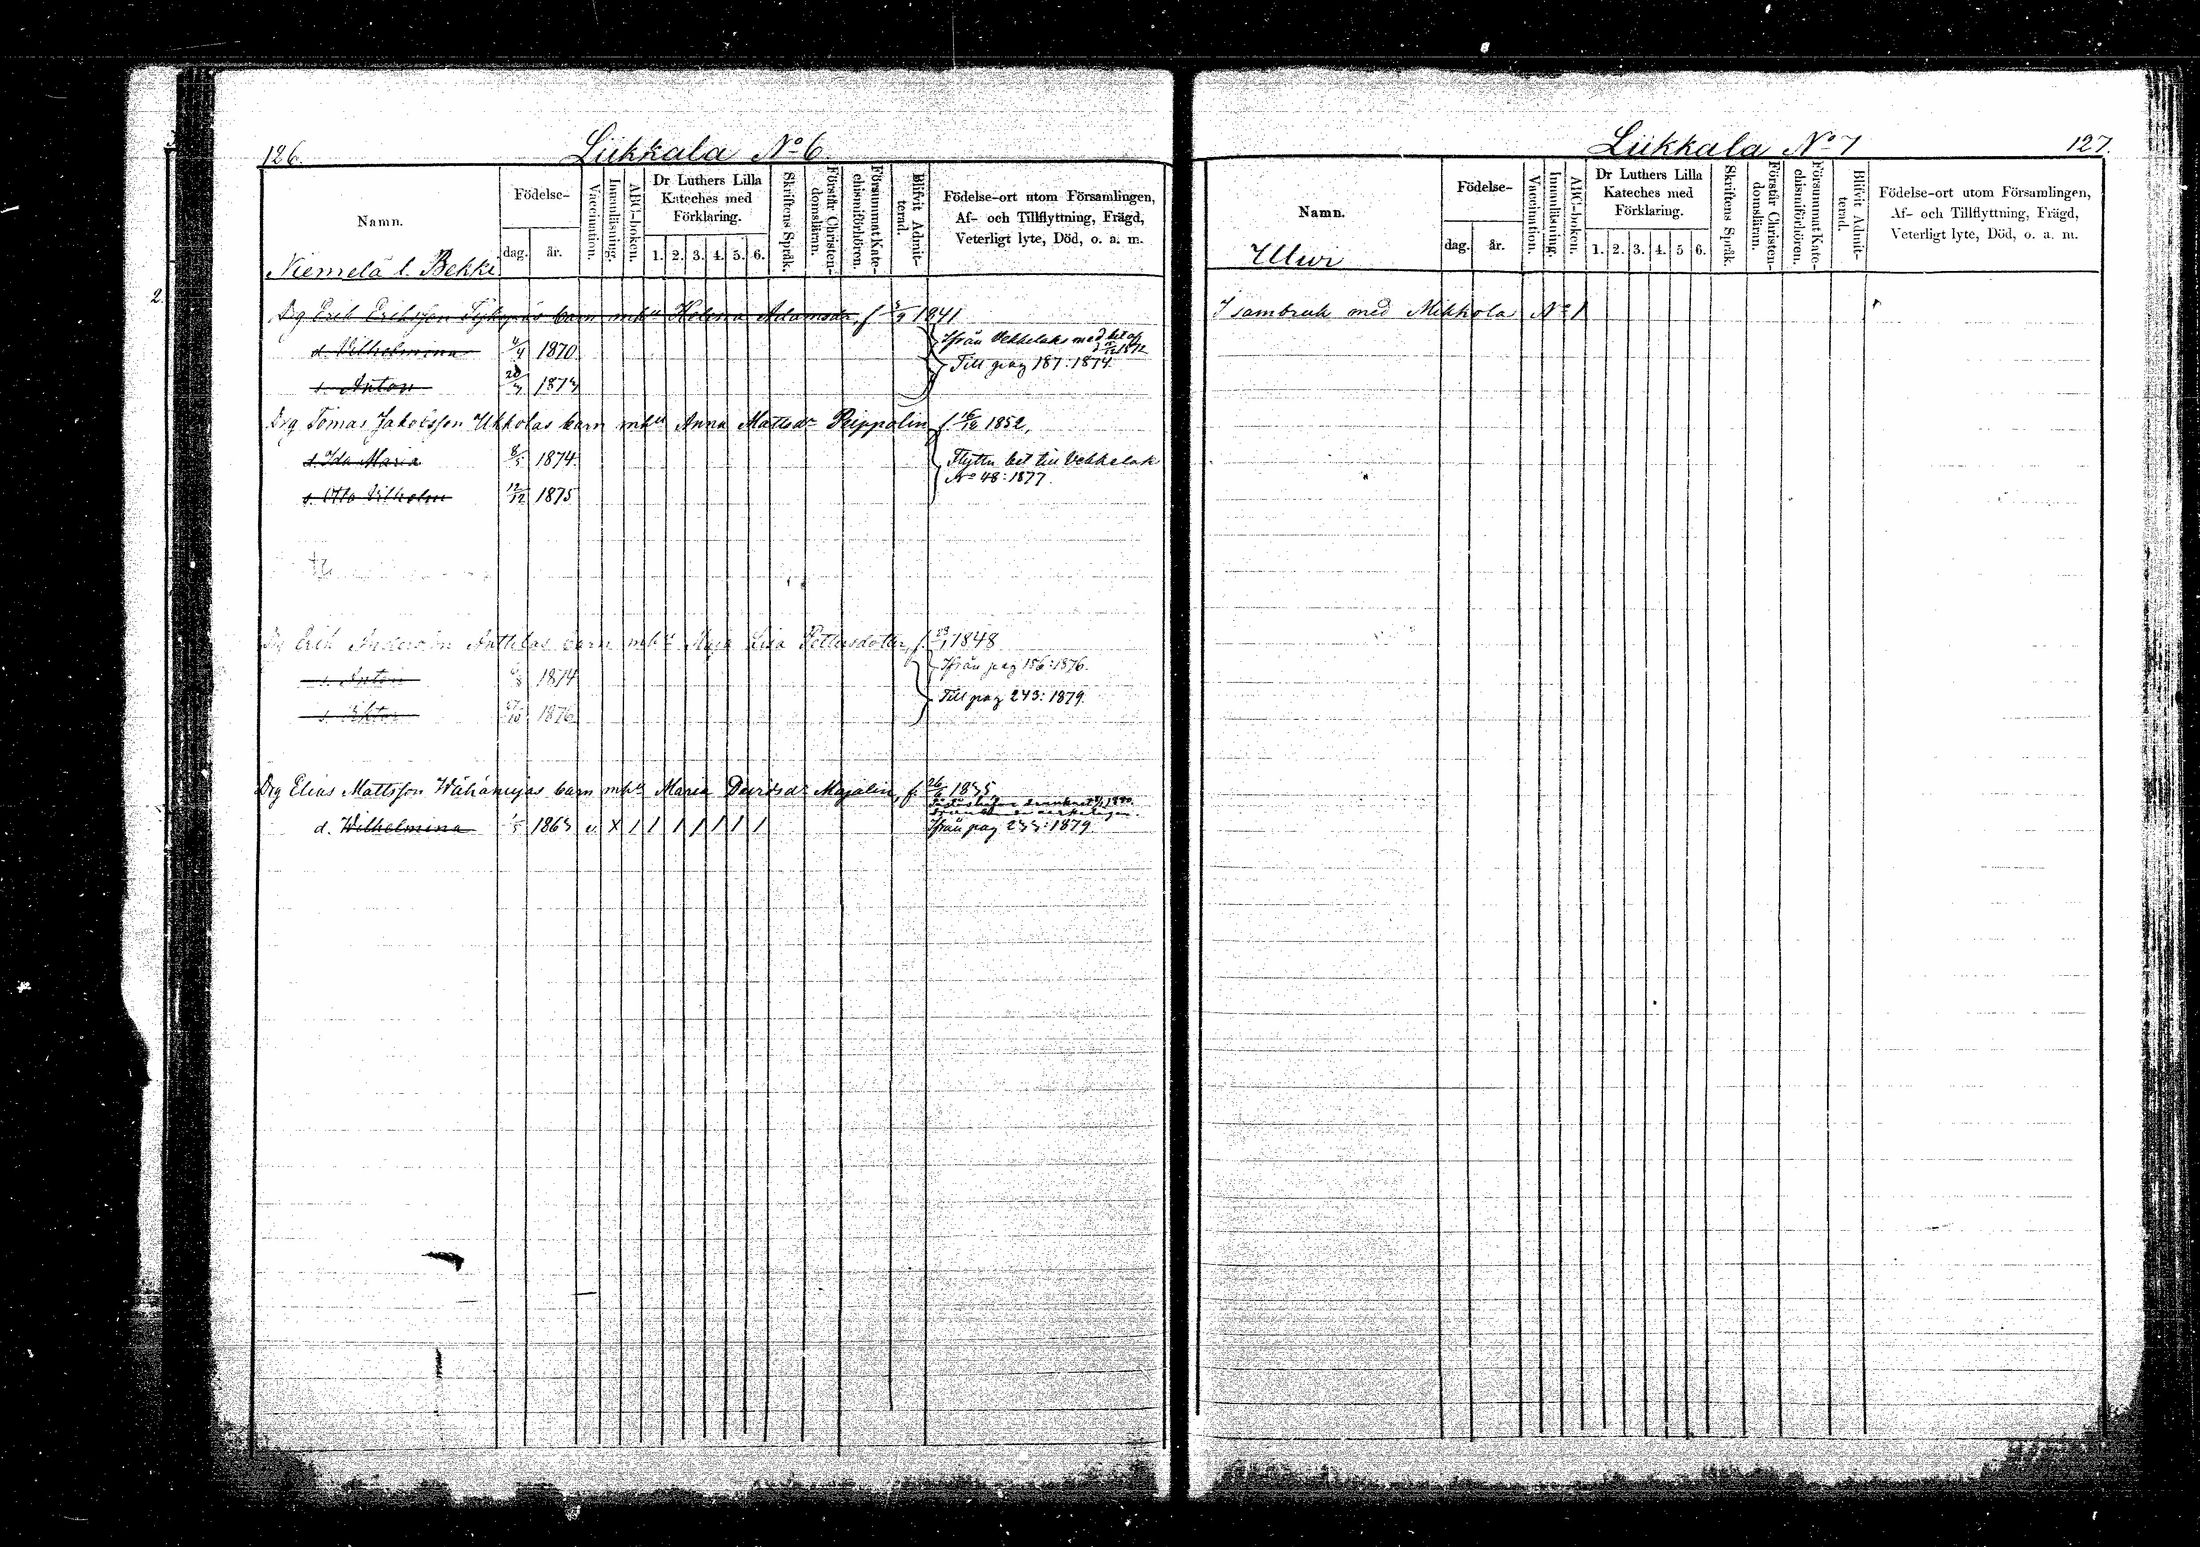 126. Liikkala No 6.
Namn.
Födelse-
dag. år.
Vaccination.
Innanläsning.
ABC-boken.
Dr Luthers Lilla
Kateches med
Förklaring.
1. 2. 3. 4. 5. 6.
Skriftens Språk.
Förstår Christen-
domsläran.
Försummat Kate-
chismiförhören.
Blifvit Admit-
terad.
Födelse-ort utom Församlingen,
Af- och Tillflyttning, Frägd,
Veterligt lyte, Död, o. a. m.
Niemelä l. Bekki
Drg Erik Eriksson barn mhu Helena Adamsdr, f 1841
d. Vilhelmina 4/4 1870
Ifrån Vekkelaks med bet af 1872
Till pag 187: 1874.
s. Anton 20/3 1873
Drg Tomas Jakobsson Ukkolas barn mhu Anna Mattsdr Peippolin f 16/12 1852,
d. Ida Maria 8/5 1874.
Flyttn bet till Vekkelak
No 48: 1877.
s. Otto Vilhelm 12/12 1875
Drg Erik Andersson Anttilas barn mhu Maja Lisa Pettersdotter, f. 1848
Ifrån pag 156: 1876.
s. Anton 1874
Till pag 243: 1879.
s. Viktor 27/10 1876
Drg Elias Mattsson barn mhu Maria Davidsdr Majalin, f. 26/6 1835
d. Wilhelmina 1/5 1863 v. X / / / / / / /
Ifrån pag 233: 1879.
Liikkala No 7 127.
Namn.
Födelse-
dag. år.
Vaccination.
Innanläsning.
ABC-boken.
Dr Luthers Lilla
Kateches med
Förklaring.
1. 2. 3. 4. 5 6.
Skriftens Språk.
Förstår Christen-
domsläran.
Försummat Kate-
chismiförhören.
Blifvit Admit-
terad.
Födelse-ort utom Församlingen,
Af- och Tillflyttning, Frägd,
Veterligt lyte, Död, o. a. m.
I sambruk med Mikkola No 1